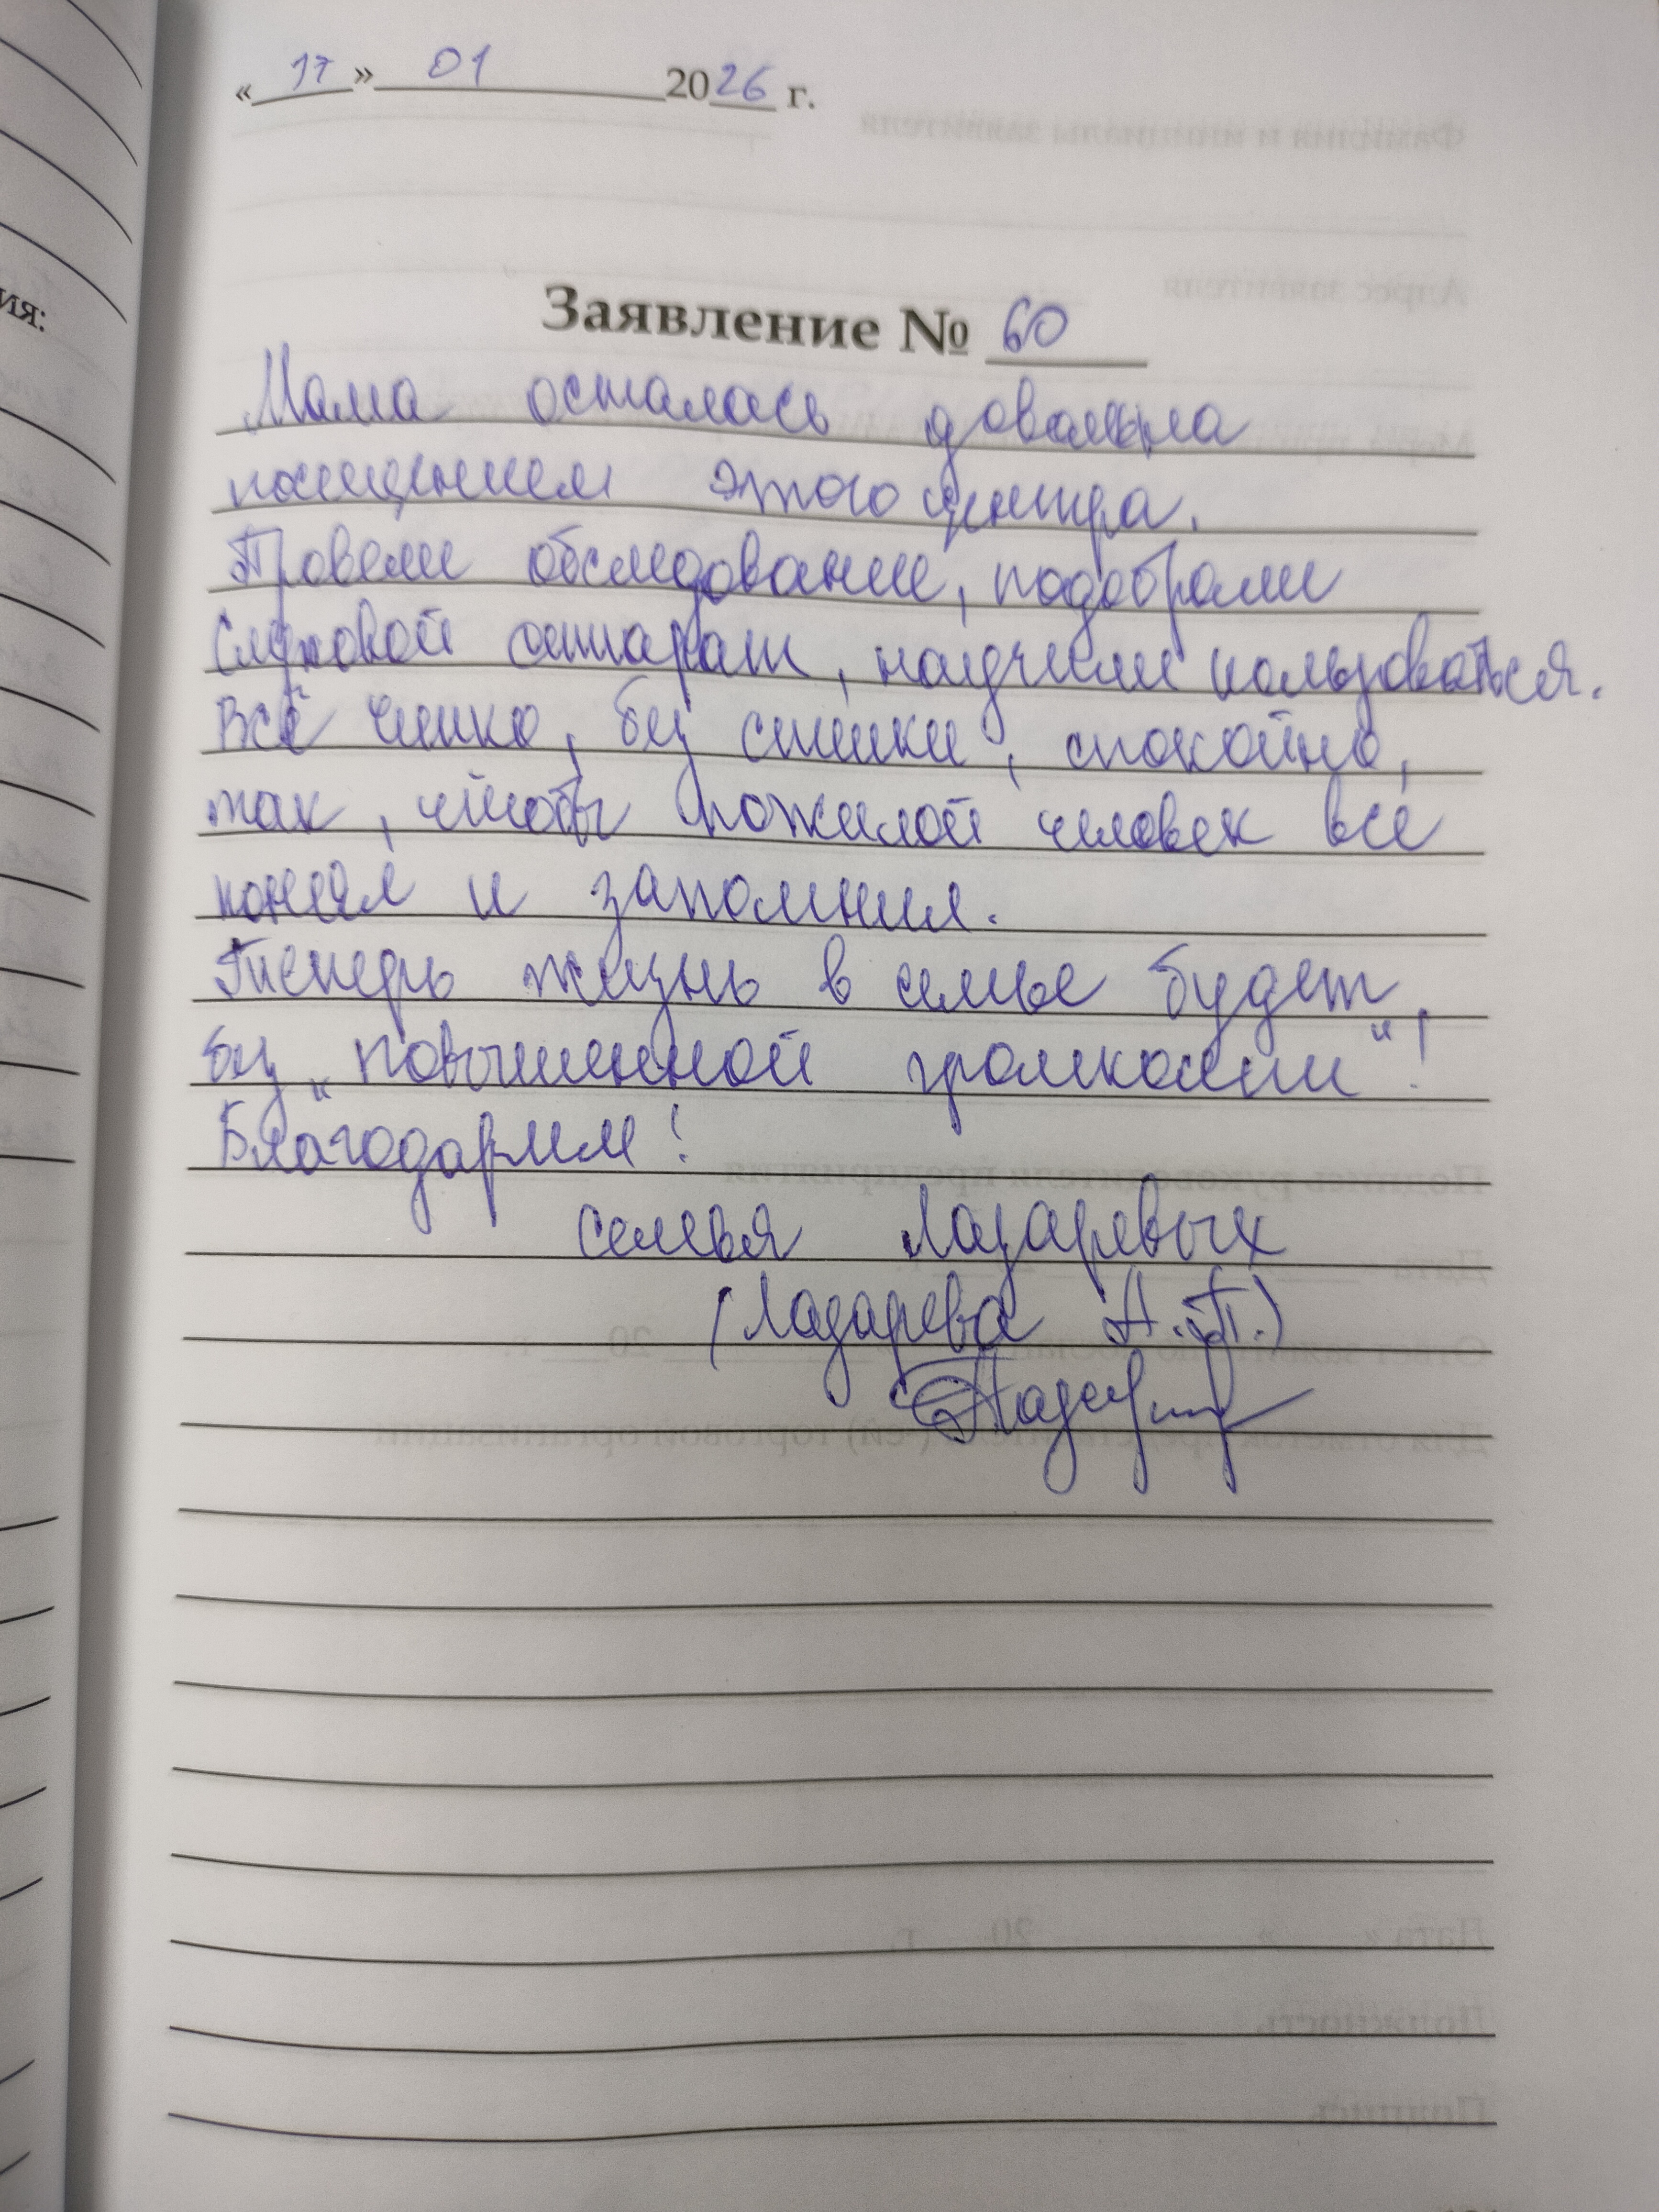 «17» 01 2026 г.
Заявление № 60
Мама осталась довольна
посещением этого центра.
Провели обследование, подобрали
слуховой аппарат, научили пользоваться.
Всё чётко, без спешки, спокойно,
так, чтобы пожилой человек всё
понял и запомнил.
Теперь жизнь в семье будет
без „повышенной громкости"!
Благодарим!
семья Лазаревых
(Лазарева А.П.)
ия: